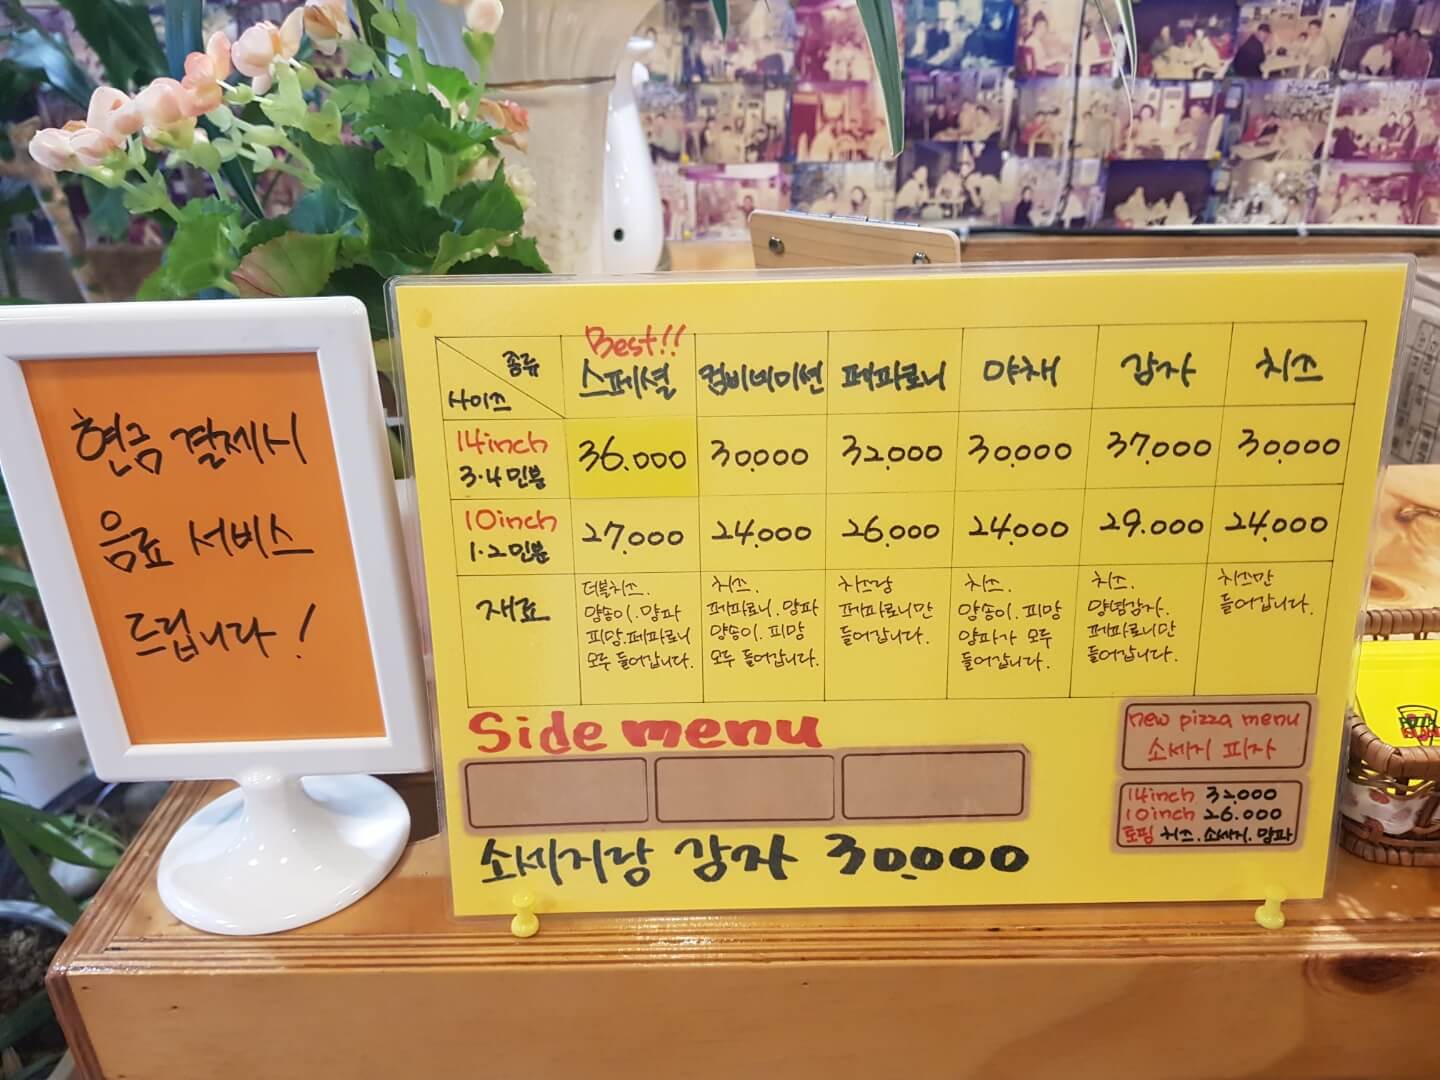 현금 결제시
음료 서비스
드립니다!
종류
사이즈
Best!!
스페셜
컴비네이션
페파로니
야채
감자
치즈
14inch
3.4인분
36.000
30.000
32.000
30.000
37.000
30.000
10inch
1.2인분
27.000
24.000
26.000
24.000
29.000
24.000
재료
더블치즈.
양송이.양파
피망.페파로니
모두 들어갑니다.
치즈.
페파로니.양파
양송이.피망
모두 들어갑니다.
치즈랑
페파로니만
들어갑니다.
치즈.
양송이.피망
양파가 모두
들어갑니다.
치즈.
양념감자.
페파로니만
들어갑니다.
치즈만
들어갑니다.
Side menu
소세지랑 감자 30.000
new pizza menu
소세지 피자
14inch 32.000
10inch 26.000
토핑 치즈.소세지.양파